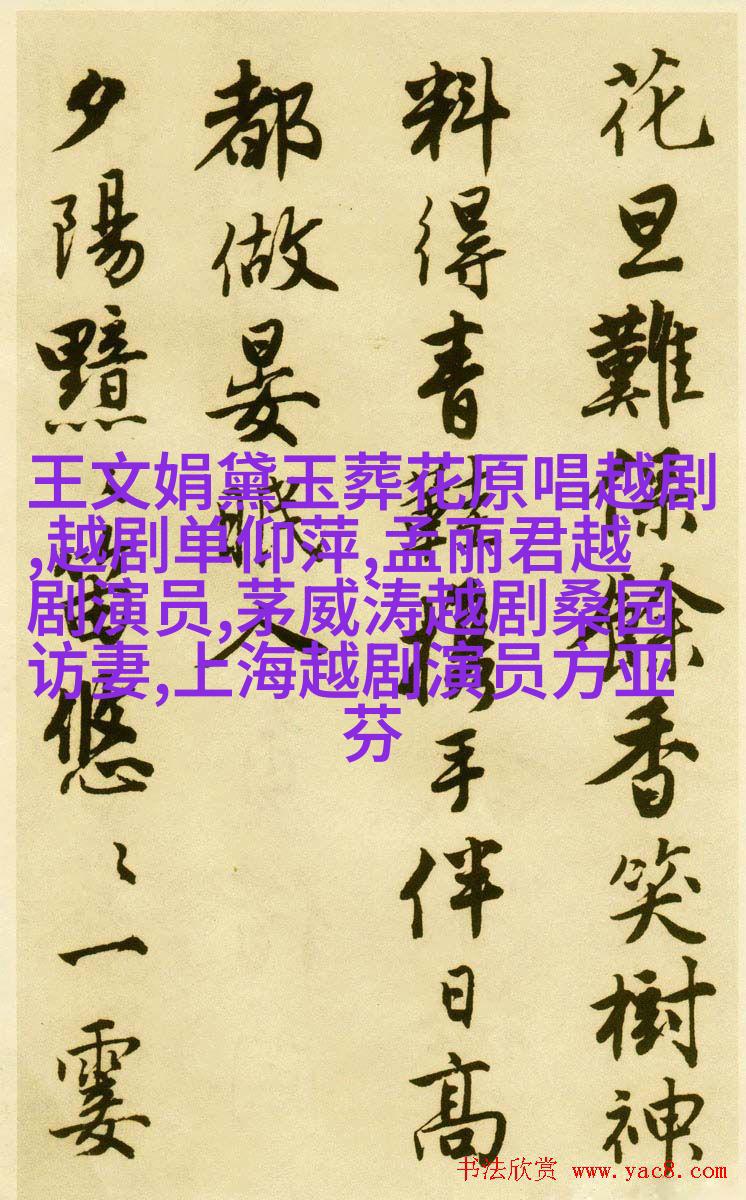 花旦難保餘香笑樹神
料得青鞵携手伴日高
都做晏眠人
夕陽黯〻笛悠〻一霎
王文娟黛玉葬花原唱越剧
,越剧单仰萍,孟丽君越
剧演员,茅威涛越剧桑园
访妻,上海越剧演员方亚
芬
书法欣赏 www.yac8.com